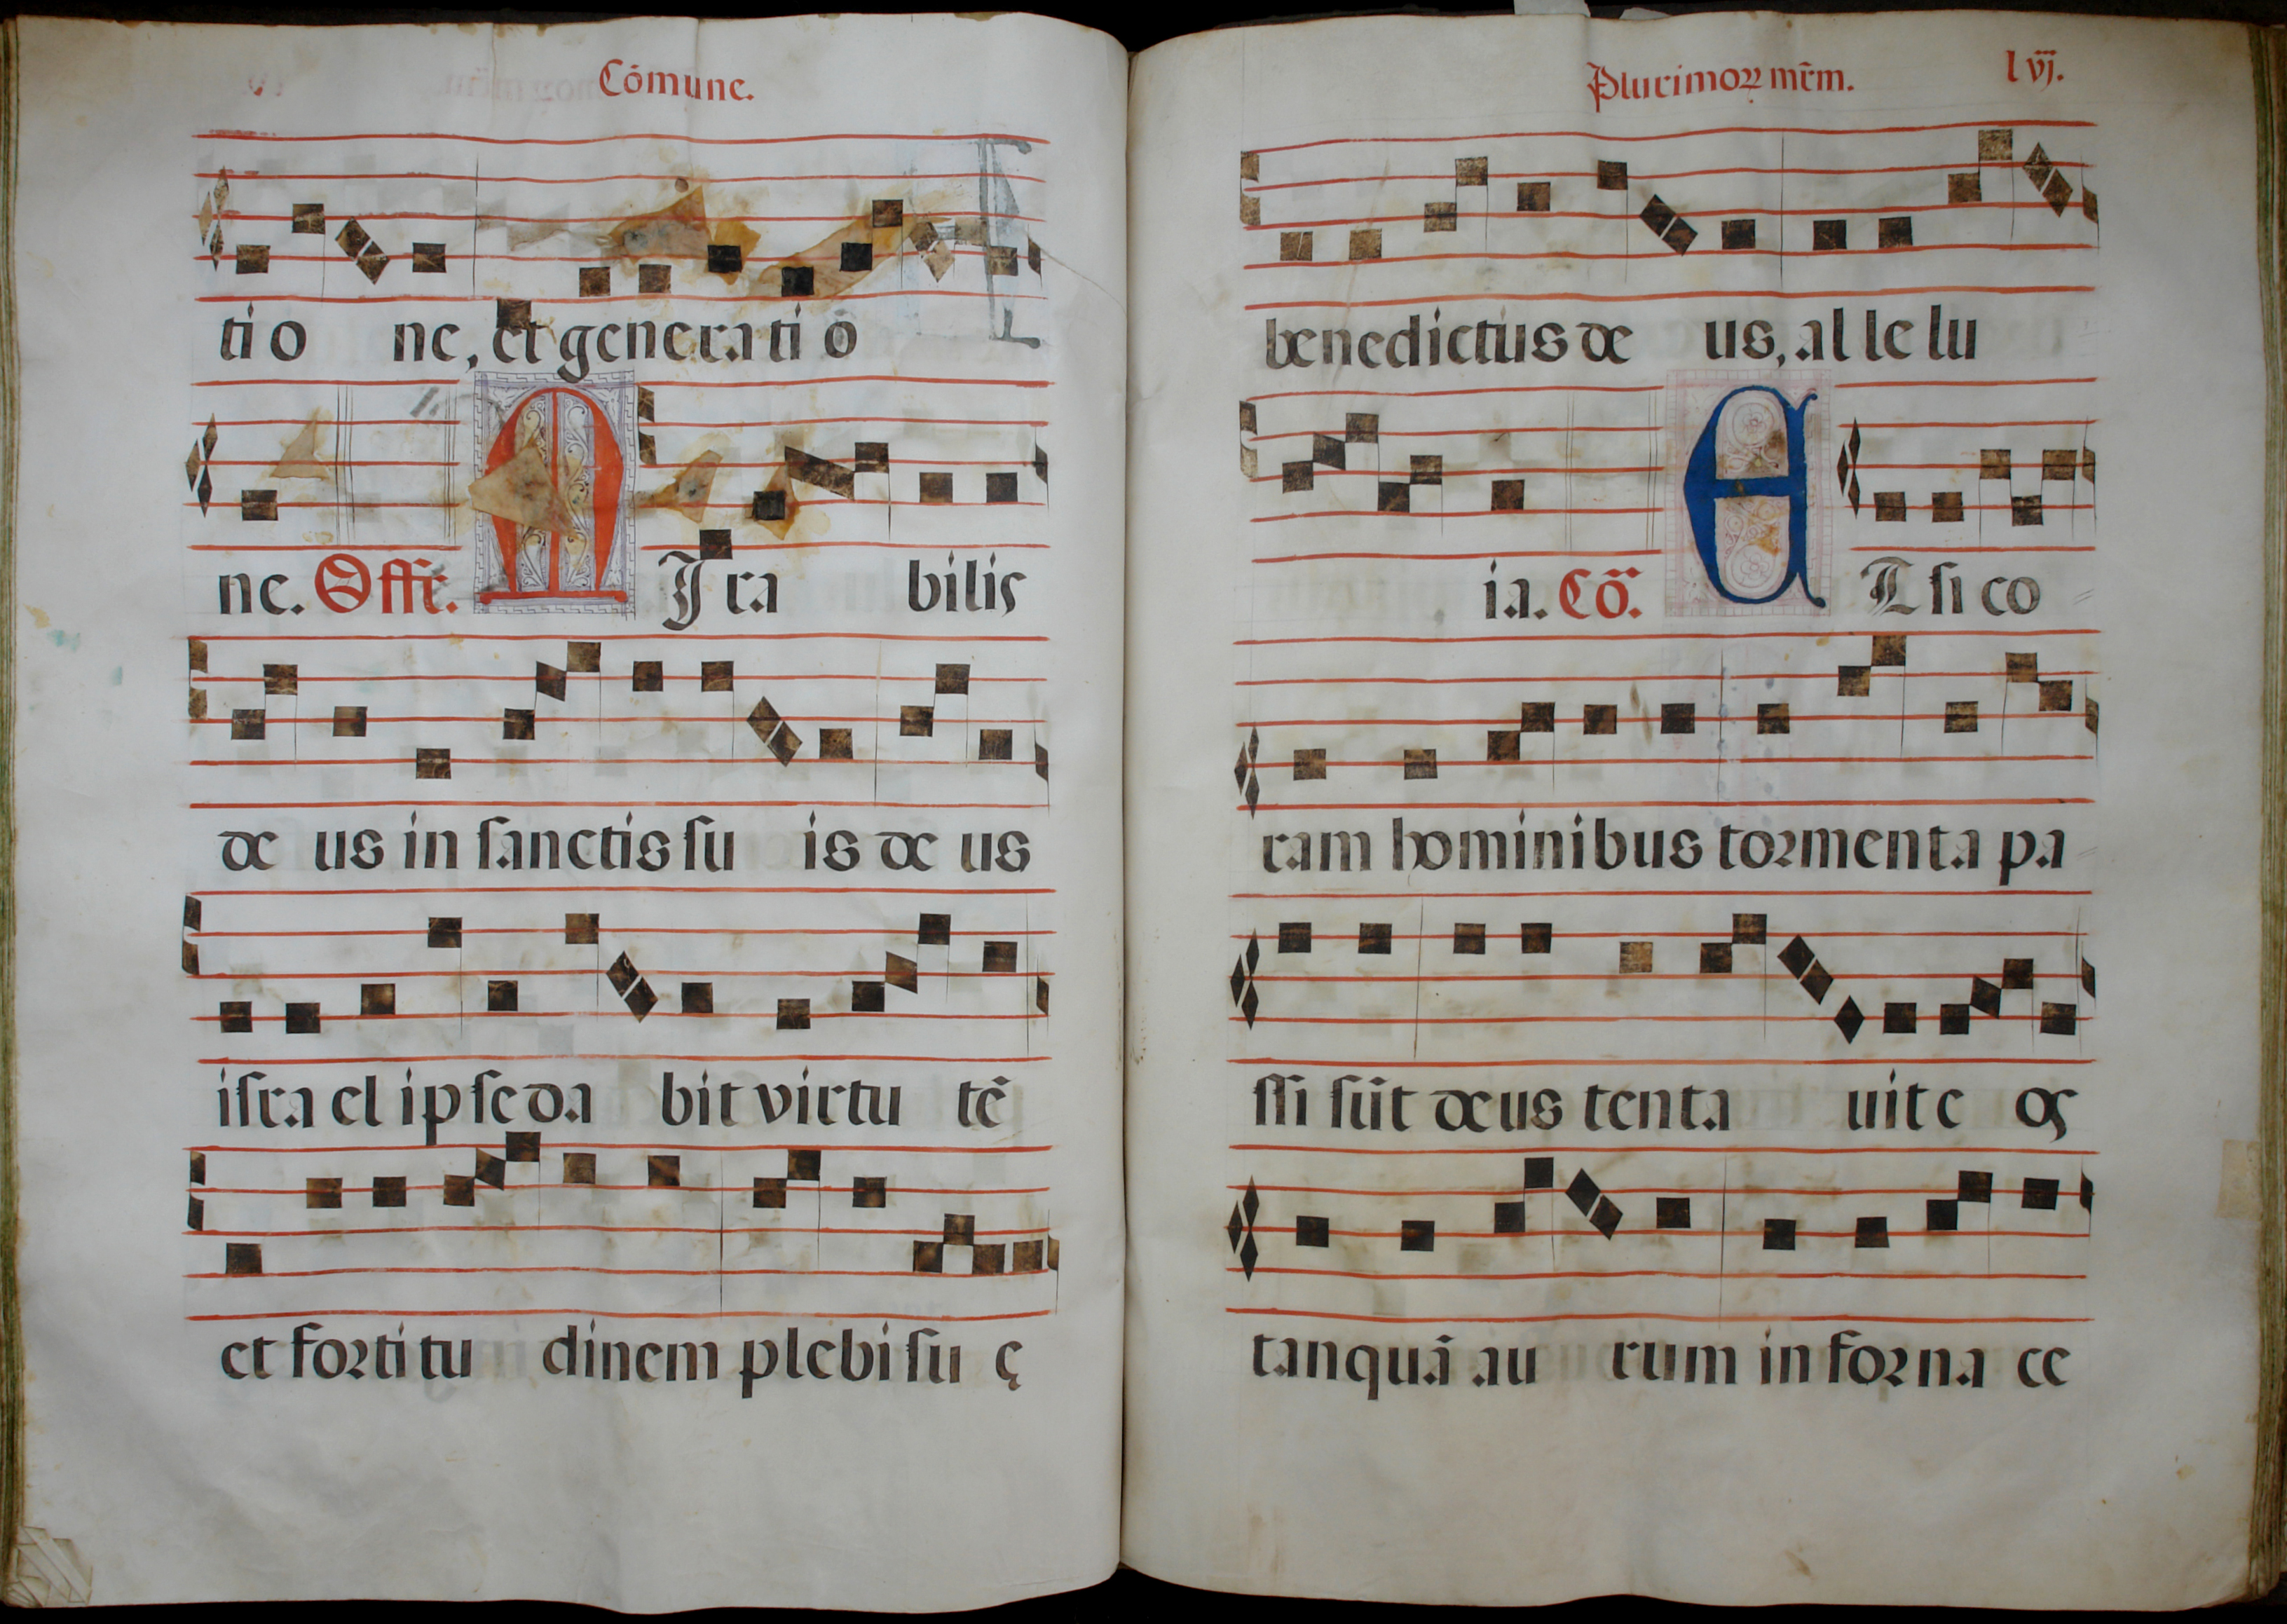 Cōmune.
ti o ne, et generati ō
ne. Offr. MIra bilis
de us in ſanctis ſu is de us
iſra el ipſe da bit virtu tē
et fortitu dinem plebi ſu ę
Plurimoꝝ mr̄m. lvj.
benedictus de us, al le lu
ia. Cō. ET ſi co
ram hominibus tormenta pa
ſſi ſūt deus tenta uit e os
tanquā au rum in forna ce